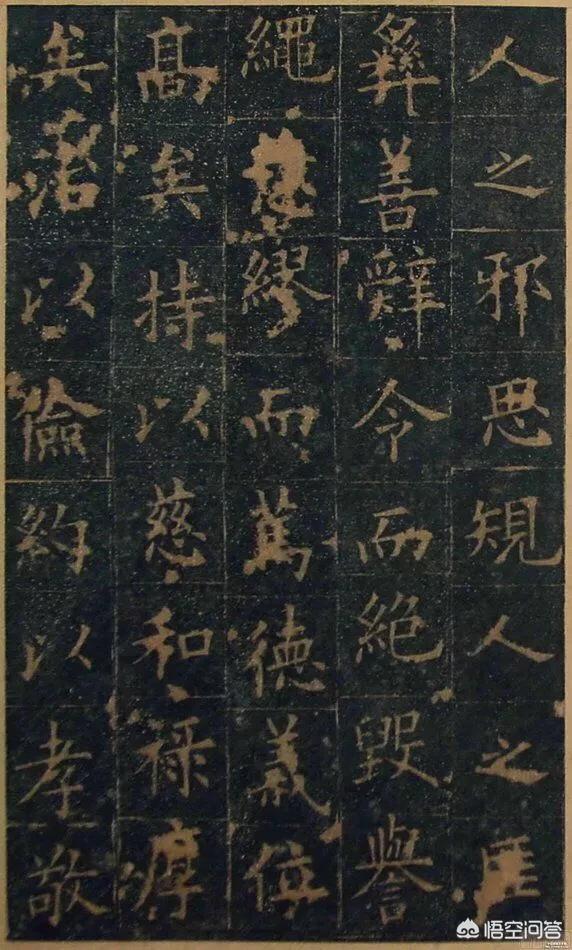 人之邪思規人之
彝善辭令而絕毀譽
繩愆繆而萬德義位
高矣持以慈和祿厚
矣諸以儉約以孝敬
悟空问答